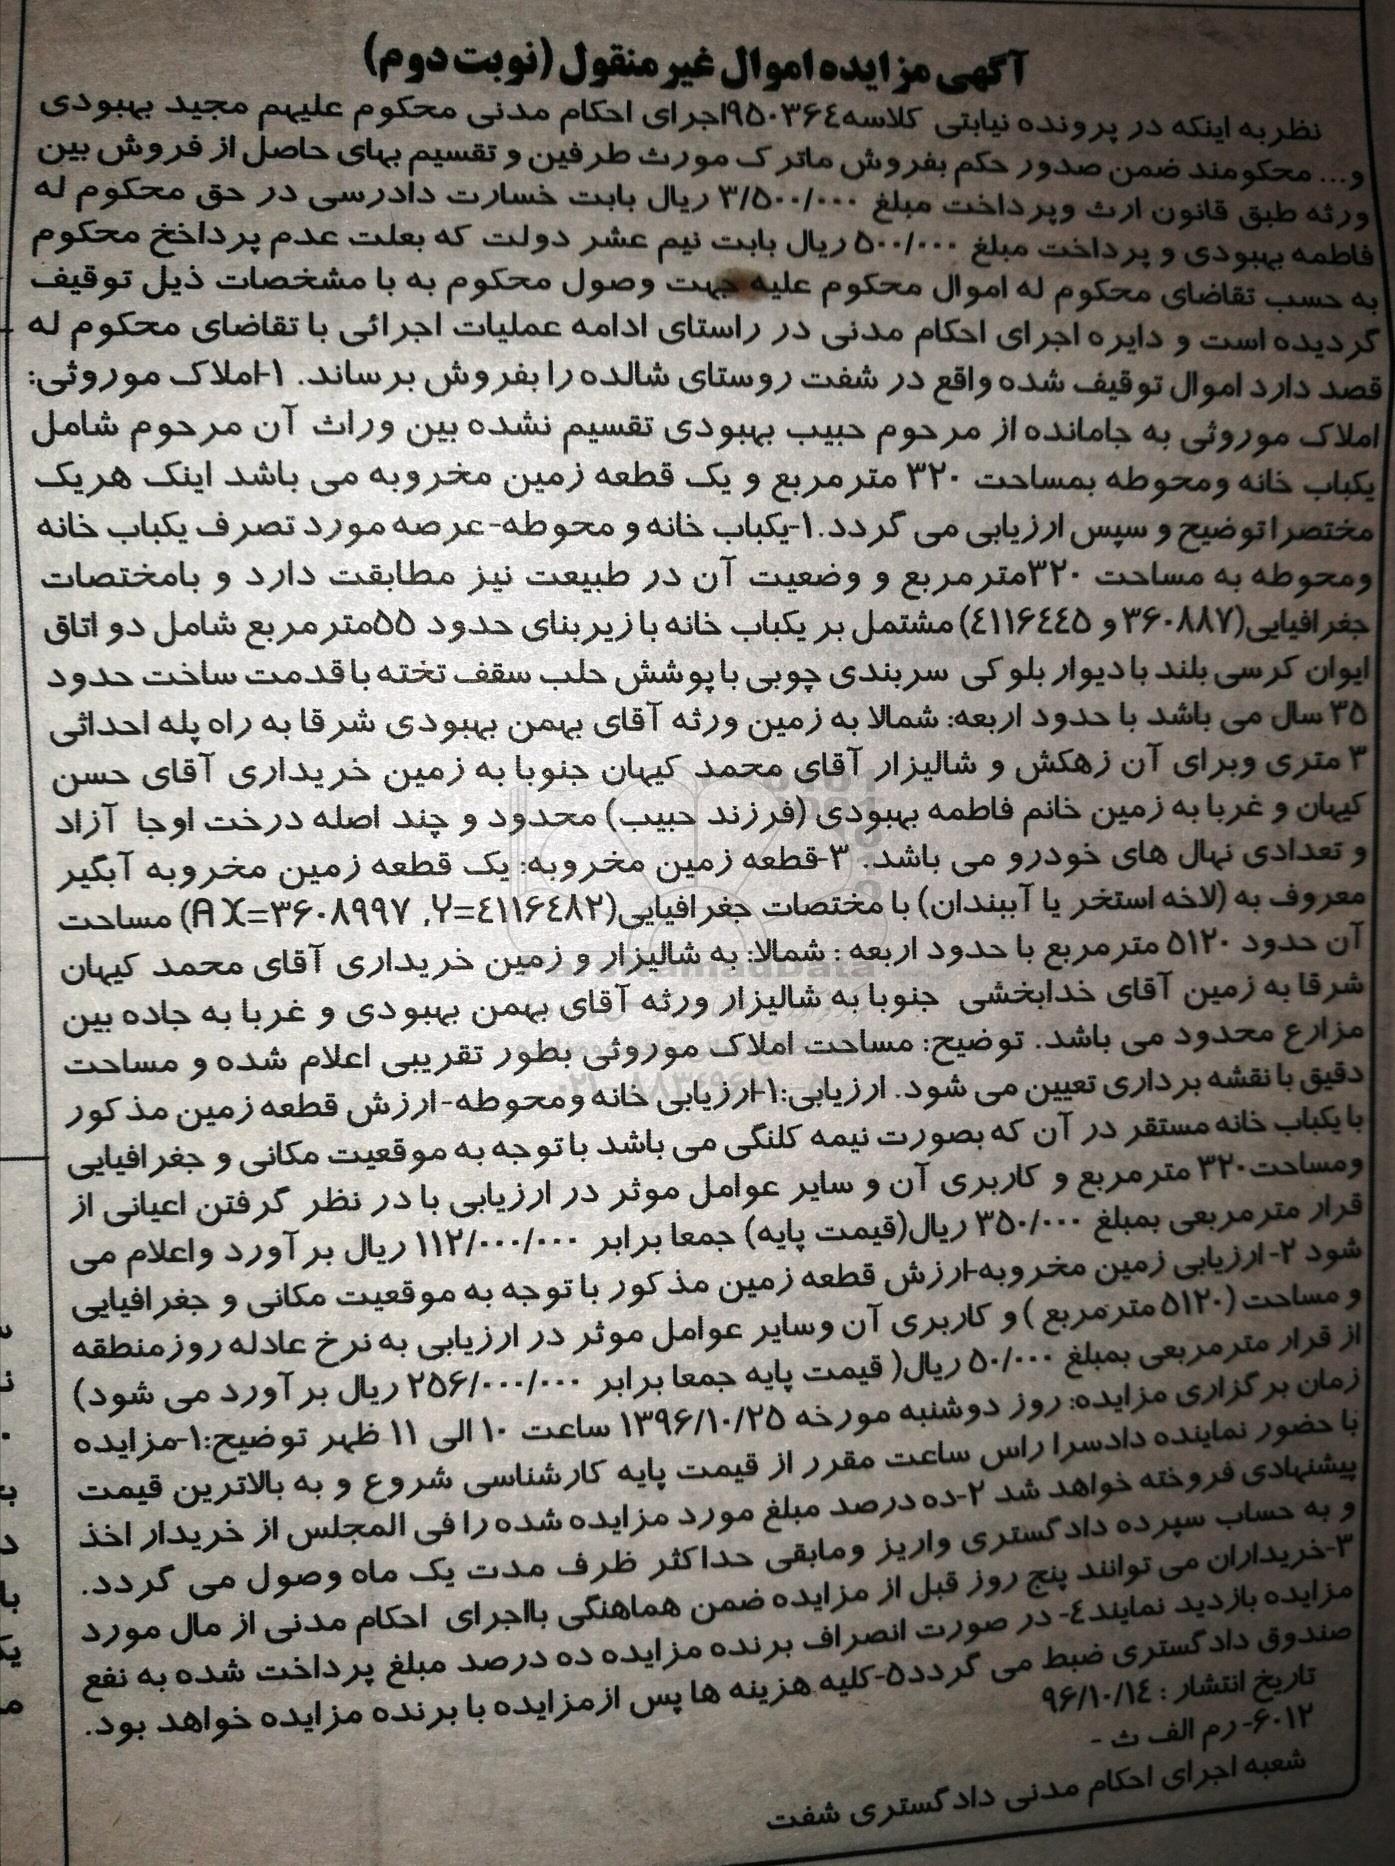 آگهی مزایده اموال غیر منقول (نوبت دوم)
نظر به اینکه در پرونده نیابتی کلاسه ۹۵۰۳۶٤اجرای احکام مدنی محکوم علیهم مجید بهبودی
و... محکومند ضمن صدور حکم بفروش ماترک مورث طرفین و تقسیم بهای حاصل از فروش بین
ورثه طبق قانون ارث وپرداخت مبلغ ۳/۵۰۰/۰۰۰ ریال بابت خسارت دادرسی در حق محکوم له
فاطمه بهبودی و پرداخت مبلغ ۵۰۰/۰۰۰ ریال بابت نیم عشر دولت که بعلت عدم پرداخخ محکوم
به حسب تقاضای محکوم له اموال محکوم علیه جهت وصول محکوم به با مشخصات ذیل توقیف
گردیده است و دایره اجرای احکام مدنی در راستای ادامه عملیات اجرائی با تقاضای محکوم له
قصد دارد اموال توقیف شده واقع در شفت روستای شالده را بفروش برساند. ۱-املاک موروثی:
املاک موروثی به جامانده از مرحوم حبیب بهبودی تقسیم نشده بین وراث آن مرحوم شامل
یکباب خانه ومحوطه بمساحت ۳۲۰ مترمربع و یک قطعه زمین مخروبه می باشد اینک هریک
مختصرا توضیح و سپس ارزیابی می گردد.۱-یکباب خانه و محوطه- عرصه مورد تصرف یکباب خانه
ومحوطه به مساحت ۳۲۰مترمربع و وضعیت آن در طبیعت نیز مطابقت دارد و بامختصات
جغرافیایی(۳۶۰۸۸۷ و ٤۱۱۶٤٤۵) مشتمل بر یکباب خانه با زیربنای حدود ۵۵مترمربع شامل دو اتاق
ایوان کرسی بلند با دیوار بلوکی سربندی چوبی با پوشش حلب سقف تخته با قدمت ساخت حدود
۳۵ سال می باشد با حدود اربعه: شمالا به زمین ورثه آقای بهمن بهبودی شرقا به راه پله احداثی
۳ متری وبرای آن زهکش و شالیزار آقای محمد کیهان جنوبا به زمین خریداری آقای حسن
کیهان و غربا به زمین خانم فاطمه بهبودی (فرزند حبیب) محدود و چند اصله درخت اوجا آزاد
و تعدادی نهال های خودرو می باشد. ۳-قطعه زمین مخروبه: یک قطعه زمین مخروبه آبگیر
معروف به (لاخه استخر یا آببندان) با مختصات جغرافیایی(A X=۳۶۰۸۹۹۷ ,Y=٤۱۱۶٤۸۲) مساحت
آن حدود ۵۱۲۰ مترمربع با حدود اربعه : شمالا: به شالیزار و زمین خریداری آقای محمد کیهان
شرقا به زمین آقای خدابخشی جنوبا به شالیزار ورثه آقای بهمن بهبودی و غربا به جاده بین
مزارع محدود می باشد. توضیح: مساحت املاک موروثی بطور تقریبی اعلام شده و مساحت
دقیق با نقشه برداری تعیین می شود. ارزیابی:۱-ارزیابی خانه ومحوطه- ارزش قطعه زمین مذکور
با یکباب خانه مستقر در آن که بصورت نیمه کلنگی می باشد با توجه به موقعیت مکانی و جغرافیایی
ومساحت۳۲۰ مترمربع و کاربری آن و سایر عوامل موثر در ارزیابی با در نظر گرفتن اعیانی از
قرار مترمربعی بمبلغ ۳۵۰/۰۰۰ ریال(قیمت پایه) جمعا برابر ۱۱۲/۰۰۰/۰۰۰ ریال برآورد واعلام می
شود ۲- ارزیابی زمین مخروبه-ارزش قطعه زمین مذکور با توجه به موقعیت مکانی و جغرافیایی
و مساحت (۵۱۲۰ مترمربع ) و کاربری آن وسایر عوامل موثر در ارزیابی به نرخ عادله روز منطقه
از قرار مترمربعی بمبلغ ۵۰/۰۰۰ ریال( قیمت پایه جمعا برابر ۲۵۶/۰۰۰/۰۰۰ ریال برآورد می شود)
زمان برگزاری مزایده: روز دوشنبه مورخه ۱۳۹۶/۱۰/۲۵ ساعت ۱۰ الی ۱۱ ظهر توضیح:۱-مزایده
با حضور نماینده دادسرا راس ساعت مقرر از قیمت پایه کارشناسی شروع و به بالاترین قیمت
پیشنهادی فروخته خواهد شد ۲-ده درصد مبلغ مورد مزایده شده را فی المجلس از خریدار اخذ
و به حساب سپرده دادگستری واریز ومابقی حداکثر ظرف مدت یک ماه وصول می گردد.
۳-خریداران می توانند پنج روز قبل از مزایده ضمن هماهنگی بااجرای احکام مدنی از مال مورد
مزایده بازدید نمایند٤- در صورت انصراف برنده مزایده ده درصد مبلغ پرداخت شده به نفع
صندوق دادگستری ضبط می گردد۵-کلیه هزینه ها پس ازمزایده با برنده مزایده خواهد بود.
تاریخ انتشار : ۹۶/۱۰/۱٤
۶۰۱۲- رم الف ث -
شعبه اجرای احکام مدنی دادگستری شفت